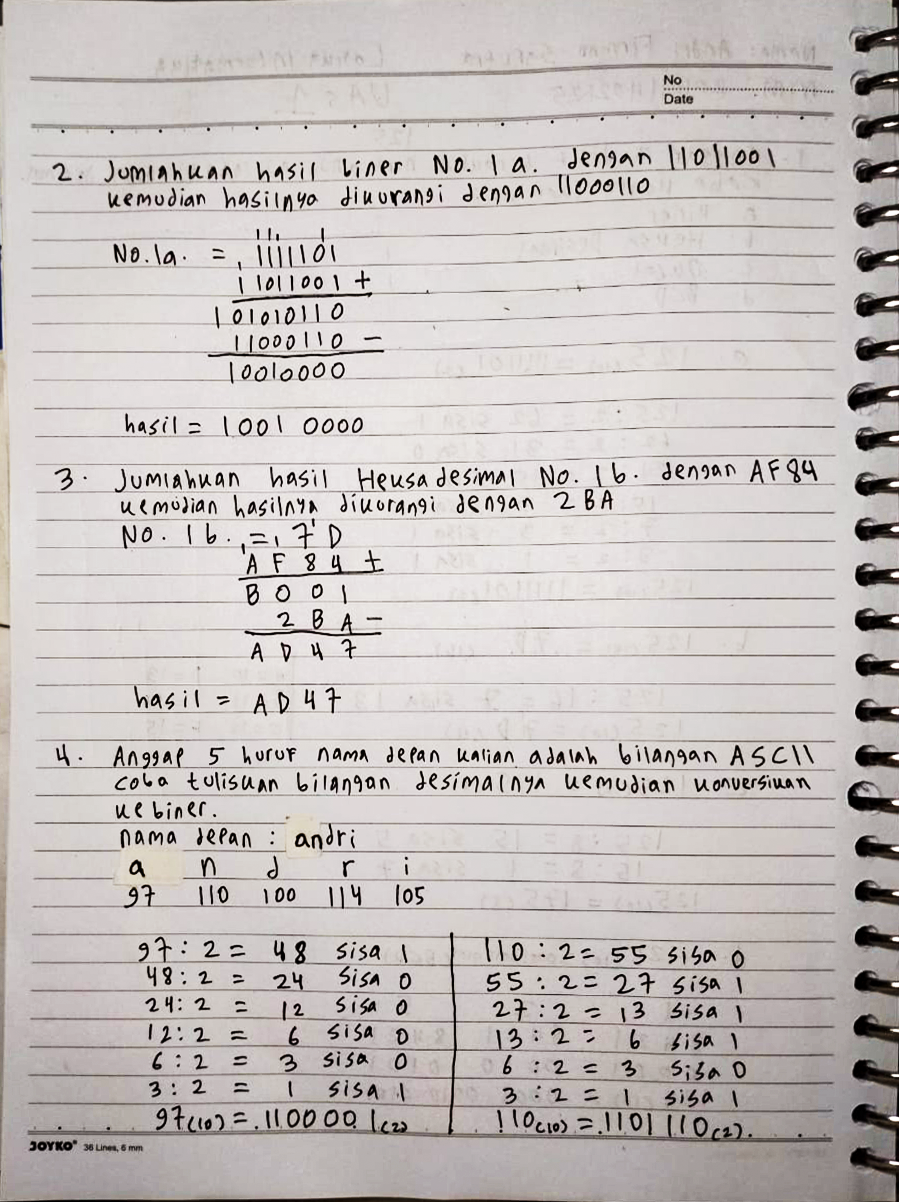 No
Date
2. Jumlahkan hasil biner No. 1 a. dengan 11011001
kemudian hasilnya dikurangi dengan 11000110
111, 1
No. 1a. = , 1111101
11011001 +
101010110
11000110 -
10010000
hasil = 1001 0000
3. Jumlahkan hasil Heksadesimal No. 1b. dengan AF84
kemudian hasilnya dikurangi dengan 2BA
No. 1b. = 7D
A F 8 4 +
B 0 0 1
2 B A -
A D 4 7
hasil = A D 4 7
4. Anggap 5 huruf nama depan kalian adalah bilangan ASCII
coba tuliskan bilangan desimalnya kemudian konversikan
ke biner.
nama depan : andri
a n d r i
97 110 100 114 105
97 : 2 = 48 sisa 1
48 : 2 = 24 sisa 0
24 : 2 = 12 sisa 0
12 : 2 = 6 sisa 0
6 : 2 = 3 sisa 0
3 : 2 = 1 sisa 1
97(10) = 1100001(2)
110 : 2 = 55 sisa 0
55 : 2 = 27 sisa 1
27 : 2 = 13 sisa 1
13 : 2 = 6 sisa 1
6 : 2 = 3 sisa 0
3 : 2 = 1 sisa 1
110(10) = 1101110(2).
JOYKO® 36 Lines, 6 mm